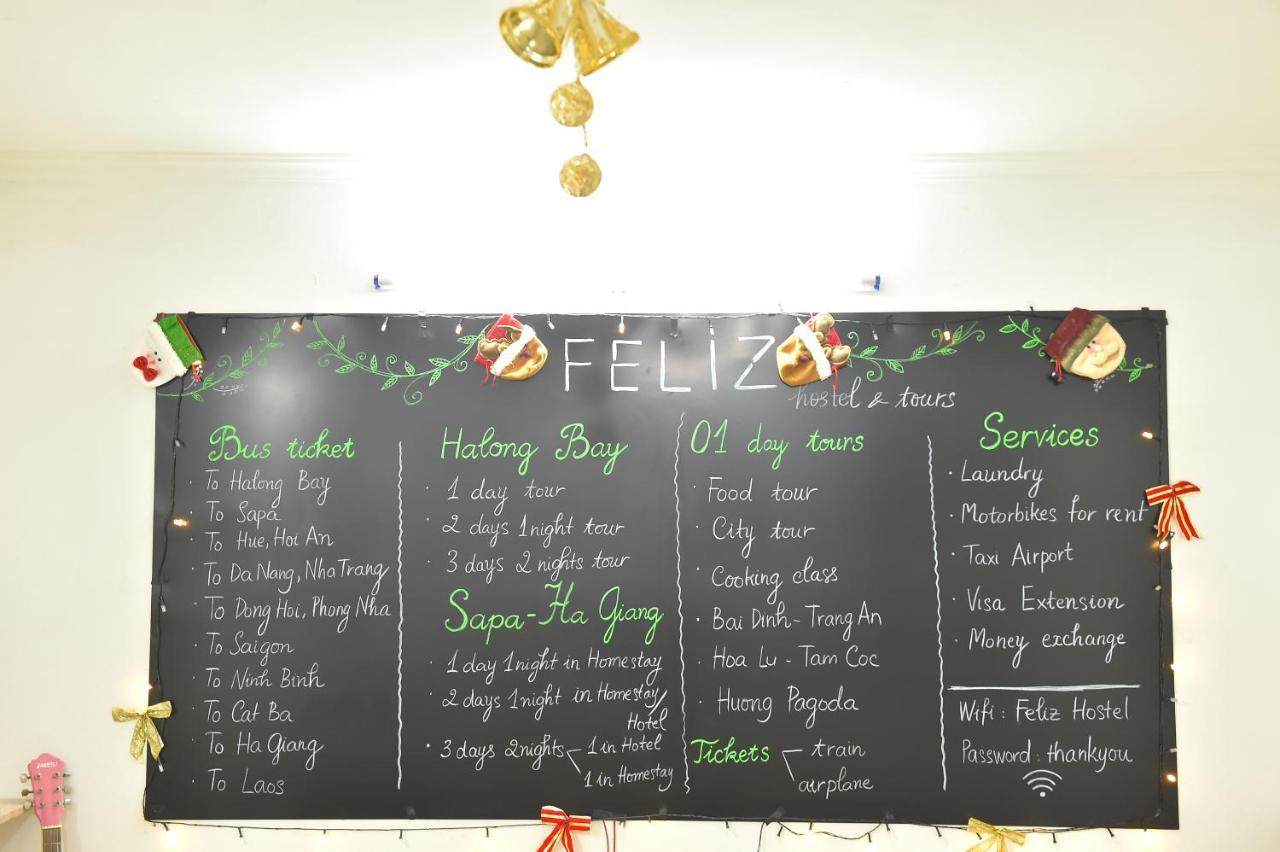 FELIZ
hostel & tours
Bus ticket
· To Halong Bay
· To Sapa
· To Hue, Hoi An
· To Da Nang, Nha Trang
· To Dong Hoi, Phong Nha
· To Saigon
· To Ninh Binh
· To Cat Ba
· To Ha Giang
· To Laos
Halong Bay
· 1 day tour
· 2 days 1night tour
· 3 days 2 nights tour
Sapa-Ha Giang
· 1 day 1night in Homestay
· 2 days 1night in Homestay/
Hotel
· 3 days 2nights
1 in Hotel
1 in Homestay
01 day tours
· Food tour
· City tour
· Cooking class
· Bai Dinh - Trang An
· Hoa Lu - Tam Coc
· Huong Pagoda
Tickets
train
airplane
Services
· Laundry
· Motorbikes for rent
· Taxi Airport
· Visa Extension
· Money exchange
Wifi : Feliz Hostel
Password : thankyou